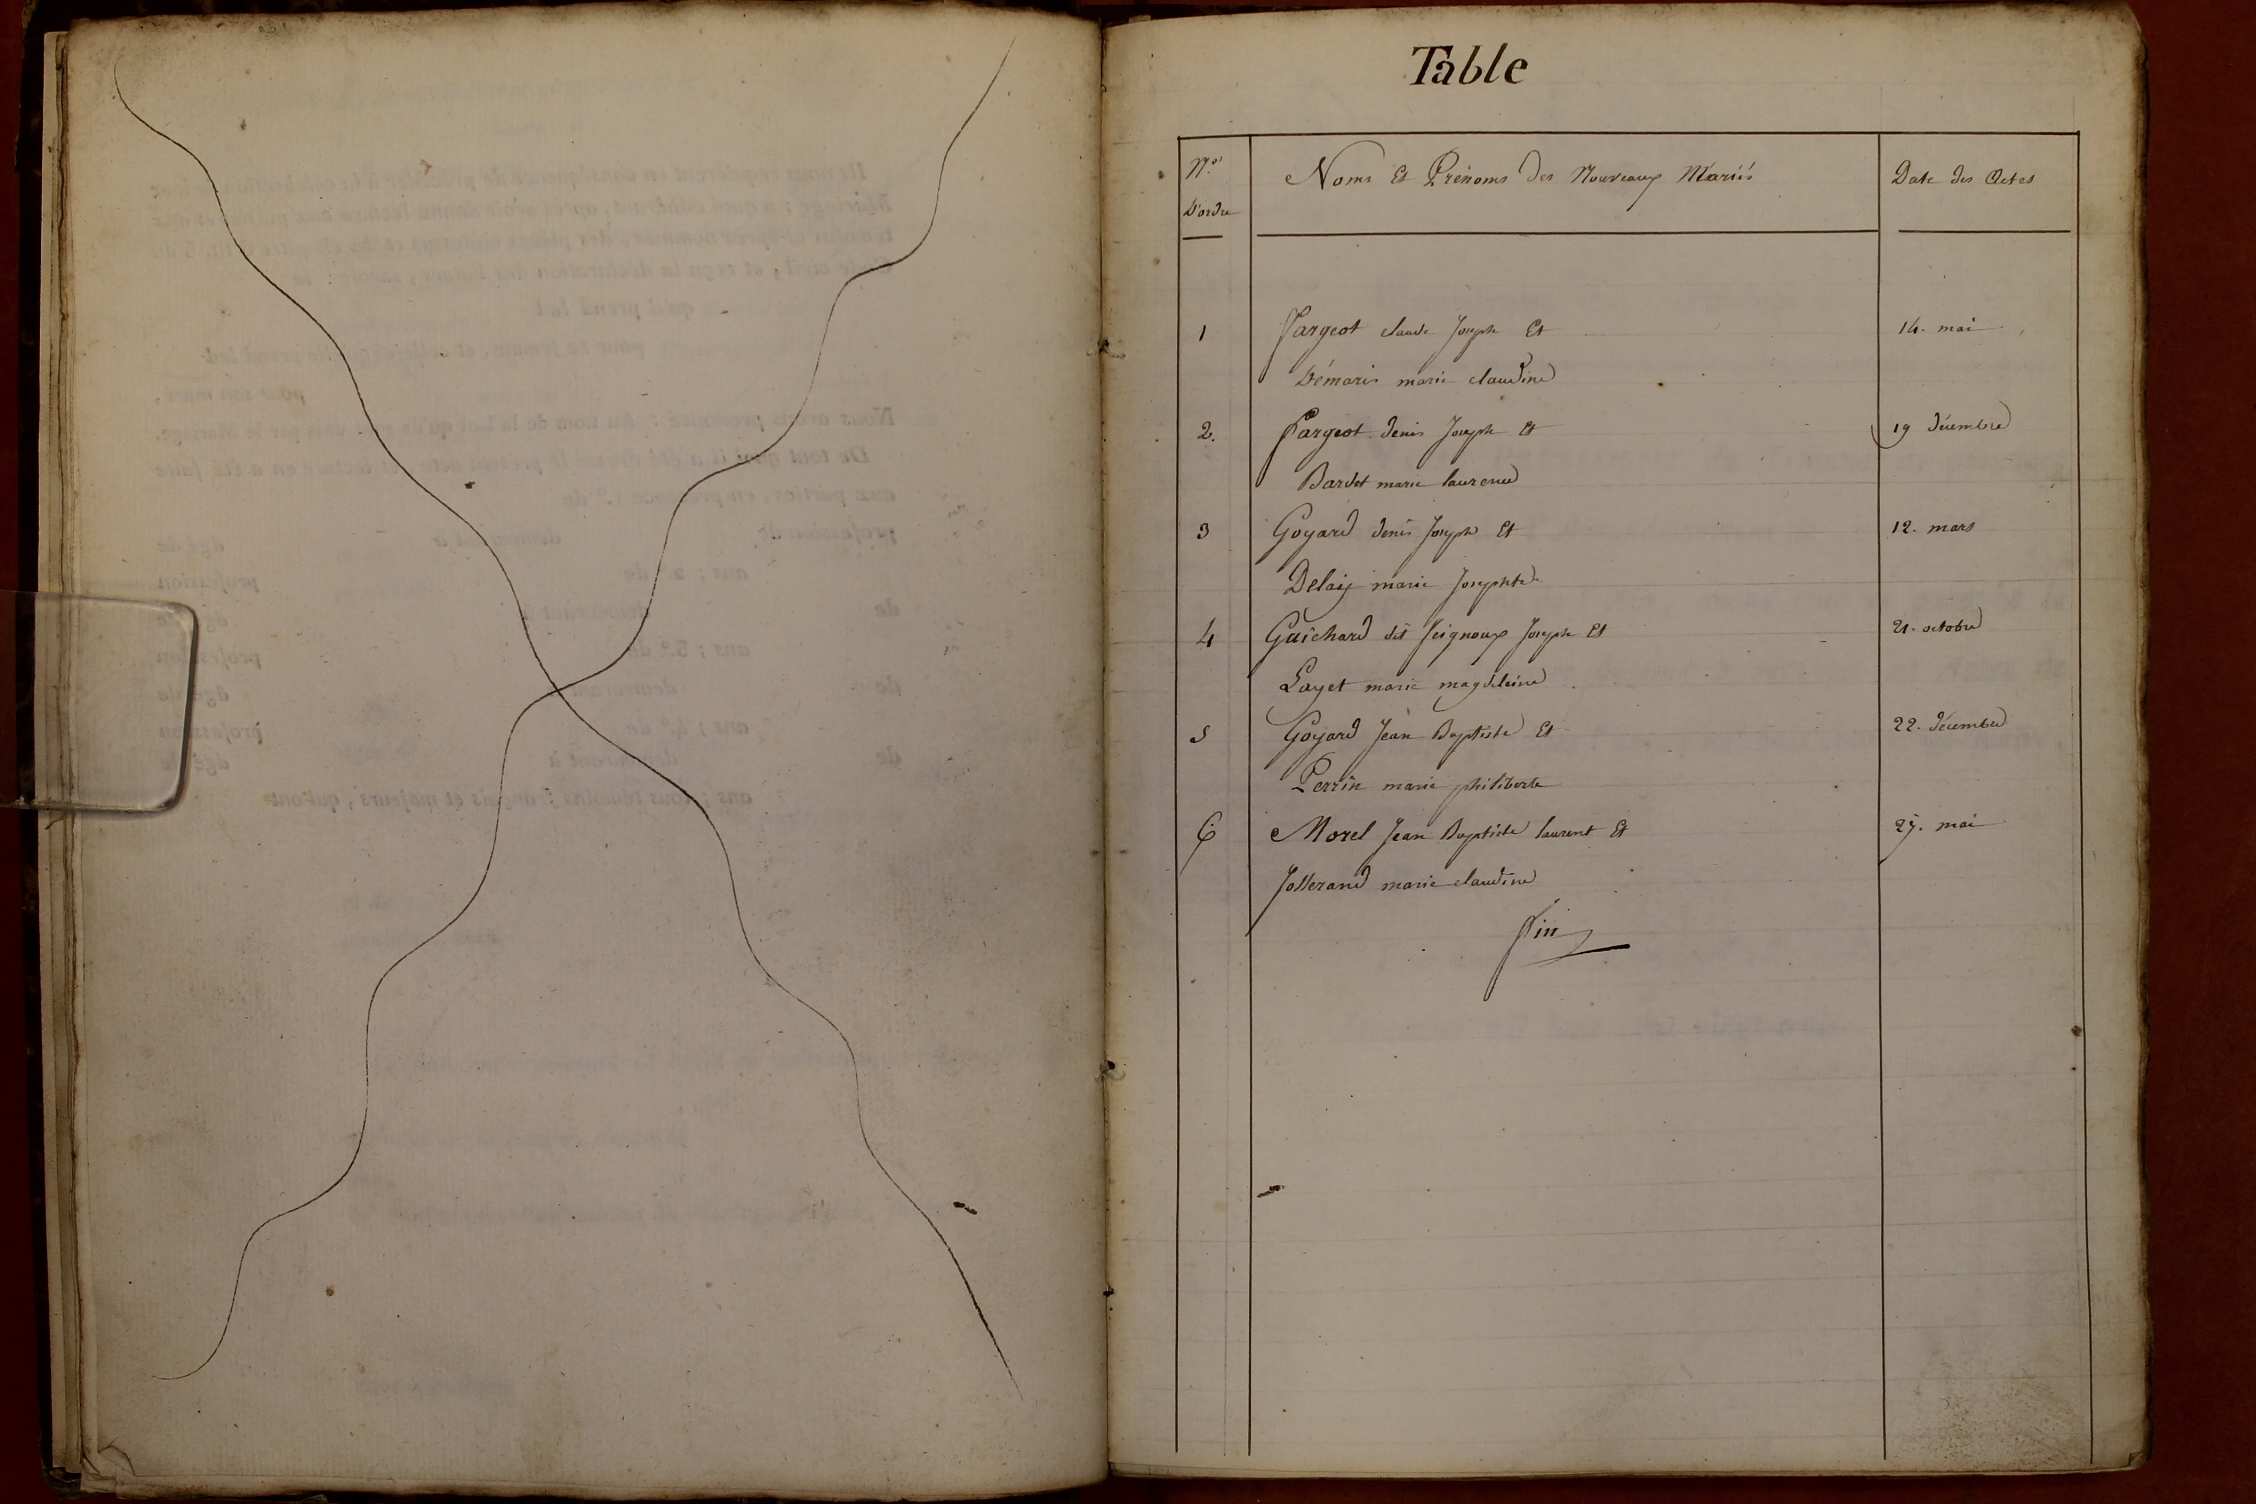 Table
Nos
D'ordre
Noms Et Prénoms Des Nouveaux Mariés
Date des Actes
1 Fargeot claude Joseph Et 14. mai
Démaris marie claudine
2. Fargeot denis Joseph Et 19 décembre
Bardet marie laurence
3 Goyard denis Joseph Et 12. mars
Delaiy marie Josephte
4 Guichard dit Seignoux Joseph Et 21. octobre
Layet marie magdeleine
5 Goyard Jean Baptiste Et 22. décembre
Perrin marie philiberte
6 Morel Jean Baptiste laurent Et 27. mai
Josserand marie claudine
fin